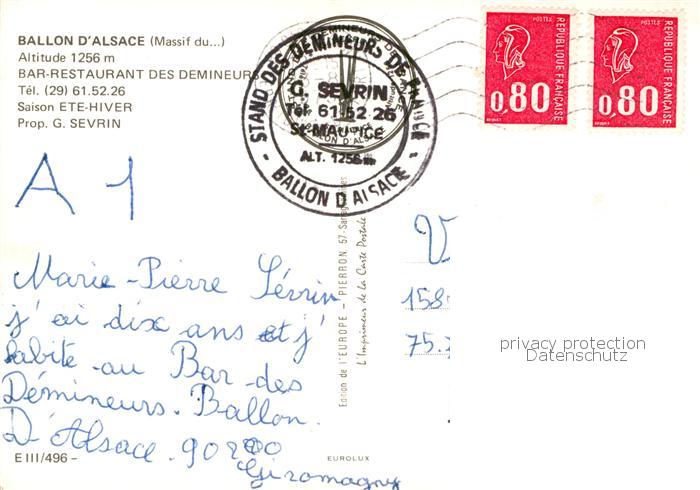 BALLON D'ALSACE (Massif du...)
Altitude 1256 m
BAR-RESTAURANT DES DEMINEURS
Tél. (29) 61.52.26
Saison ETE-HIVER
Prop. G. SEVRIN
STAND DES DEMINEURS DE
G. SEVRIN
Tél. 61.52 26
St-MAURICE
ALT. 1256m
- BALLON D'ALSACE -
POSTES
REPUBLIQUE FRANÇAISE
0,80
POSTES
REPUBLIQUE FRANÇAISE
0,80
A 1
Marie-Pierre Sévrin
j'ai dix ans et j'
habite au Bar des
Démineurs. Ballon
D'Alsace. 90200
Giromagny
Edition de l'EUROPE - PIERRON 57-
L'Imprimeur de la Carte Postale
V
158
75.
privacy protection
Datenschutz
E III/496 -
EUROLUX